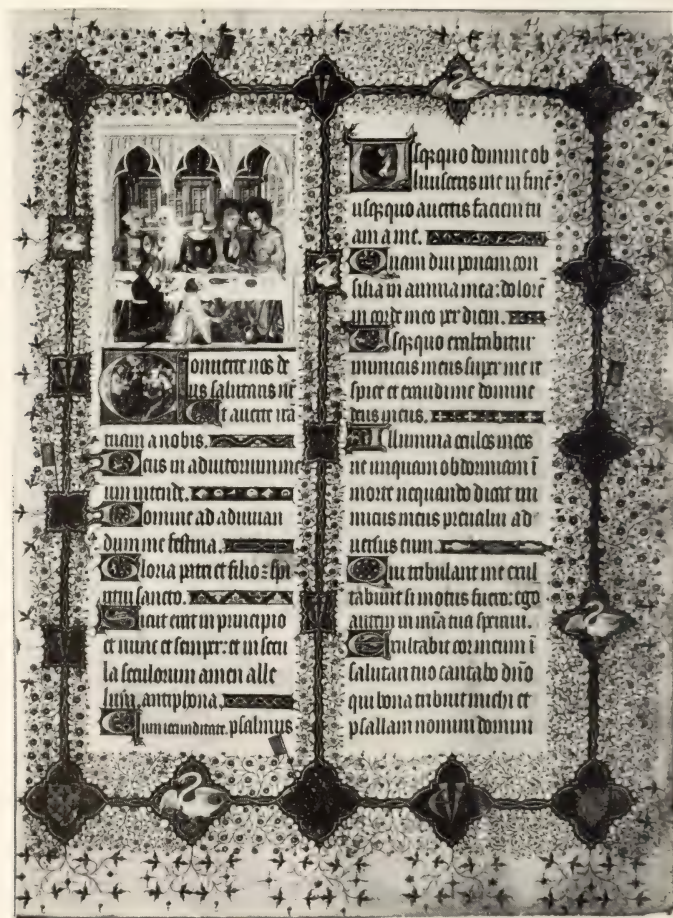 Converte nos de
us salutaris nr̄
Et averte irā
tuam a nobis.
Deus in adiutorium me
um intende.
Domine ad adiuvan
dum me festina.
Gloria patri et filio: spi
ritui sancto.
Sicut erat in principio
et nunc et semper: et in secu
la seculorum amen alle
luya. antiphona.
Cum iocunditate. psalmus
Usq̄quo domine ob
livisceris me in finē
usq̄quo avertis faciem tu
am a me.
Quam diu ponam con
silia in anima mea: dolorē
in corde meo per diem.
Usq̄quo exaltabitur
inimicus meus super me re
spice et exaudi me domine
deus meus.
Illumina oculos meos
ne unquam obdormiam ī
morte nequando dicat ini
micus meus prevalui ad
versus eum.
Qui tribulant me exul
tabunt si motus fuero: ego
autem in mīa tua speravi.
Exultabit cor meum ī
salutari tuo cantabo dn̄o
qui bona tribuit michi et
psallam nomini domini